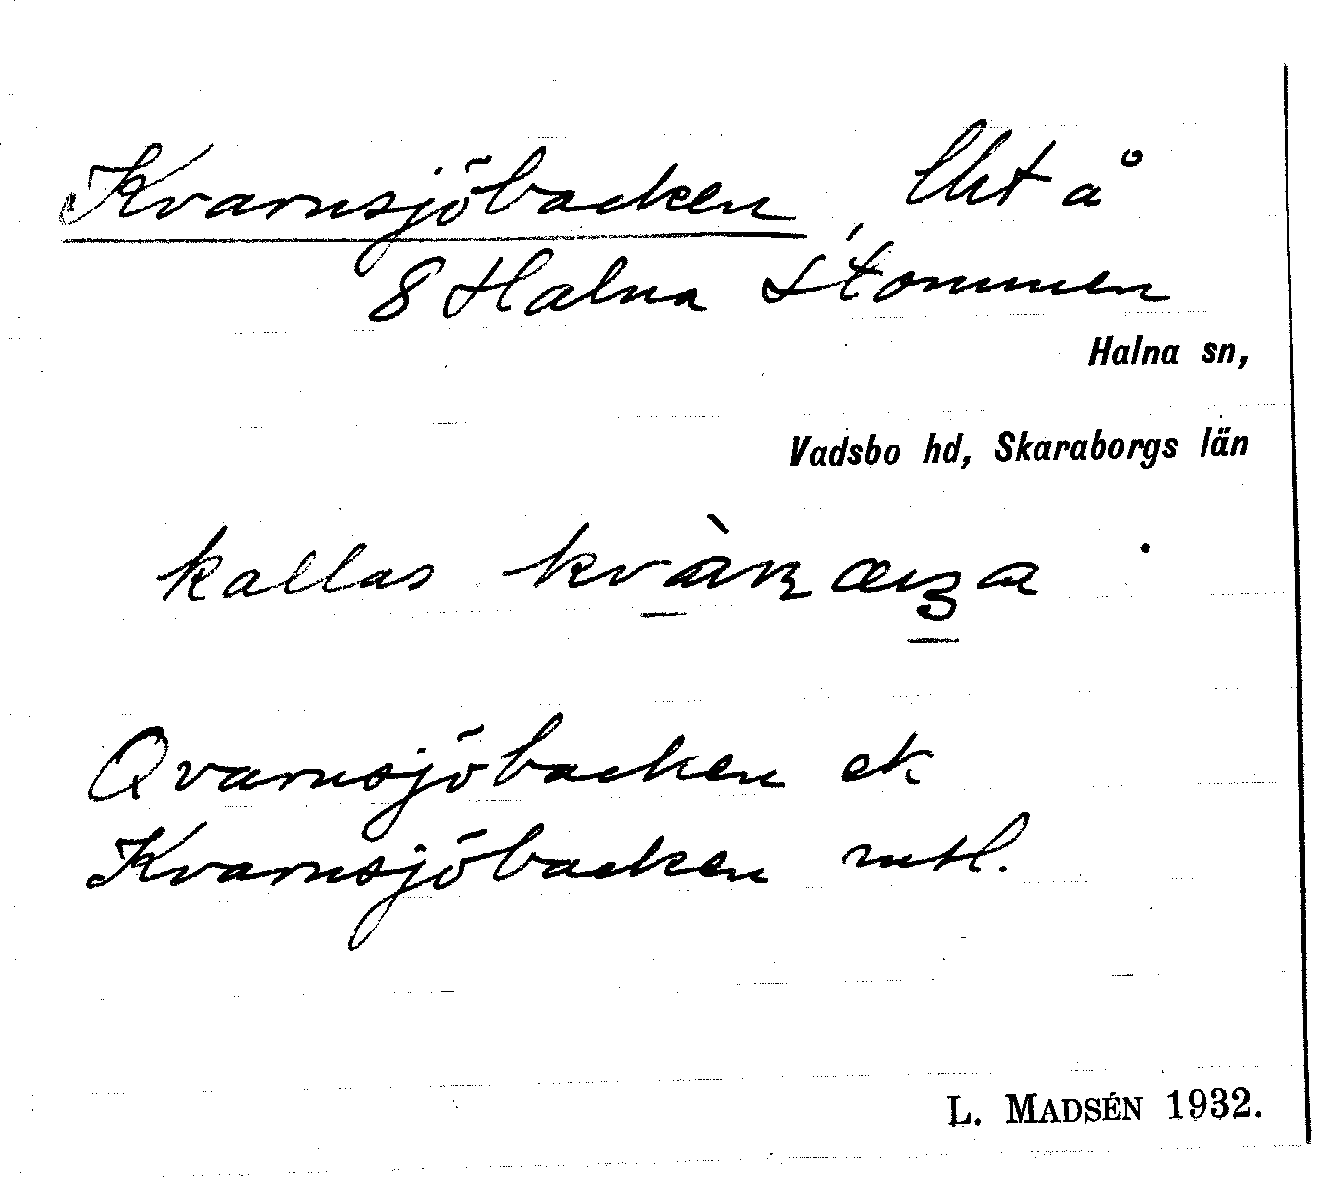 Kvarnsjöbacken, Lht å
8 Halna Stommen
Halna sn,
Vadsbo hd, Skaraborgs län
kallas
Qvarnsjöbacken ek
Kvarnsjöbacken mtl.
L. MADSÉN 1932.